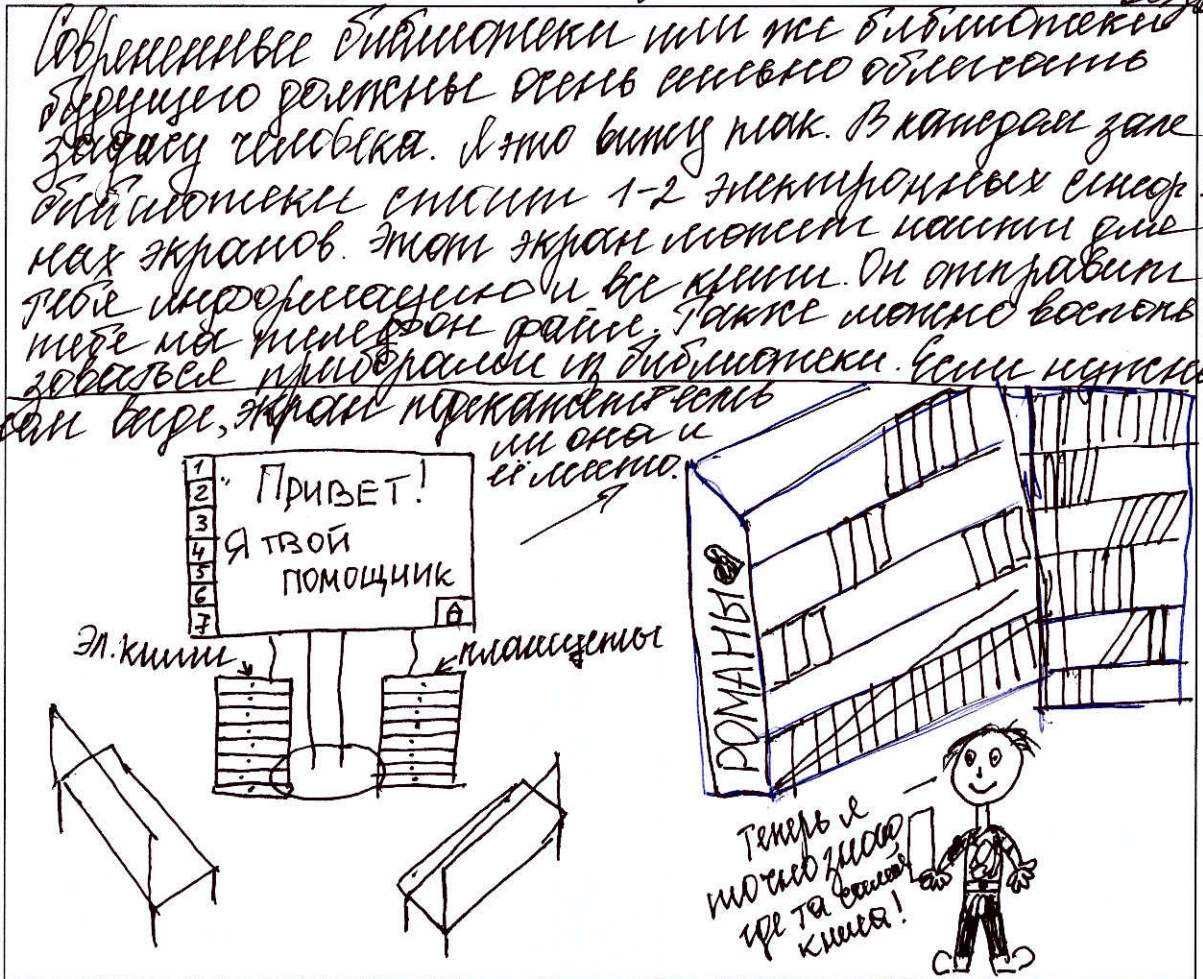 Современные библиотеки или же библиотеки
будущего должны очень сильно облегчать
задачу человека. Я это вижу так. В каждом зале
библиотеки стоит 1-2 электронных сенсор-
ных экранов. Этот экран может найти для
тебя информацию и все книги. Он отправит
тебе на телефон файл. Также можно восполь
зоваться приборами из библиотеки. Если нужна
виде, экран подскажет есть
ли она и
её место.
1
2
3
4
5
6
7
Привет!
Я твой
помощник
Эл. книги
планшеты
РОМАНЫ
Теперь я
точно знаю
где та самая
книга!